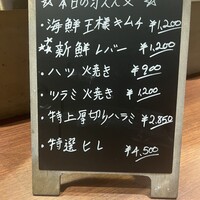 ☆本日のオススメ☆
・海鮮王様キムチ ¥1,200
☆新鮮レバー ¥1,200
・ハツ火焼き ¥900
・ツラミ火焼き ¥1200
・特上厚切りハラミ ¥2,850
・特選ヒレ ¥4,500